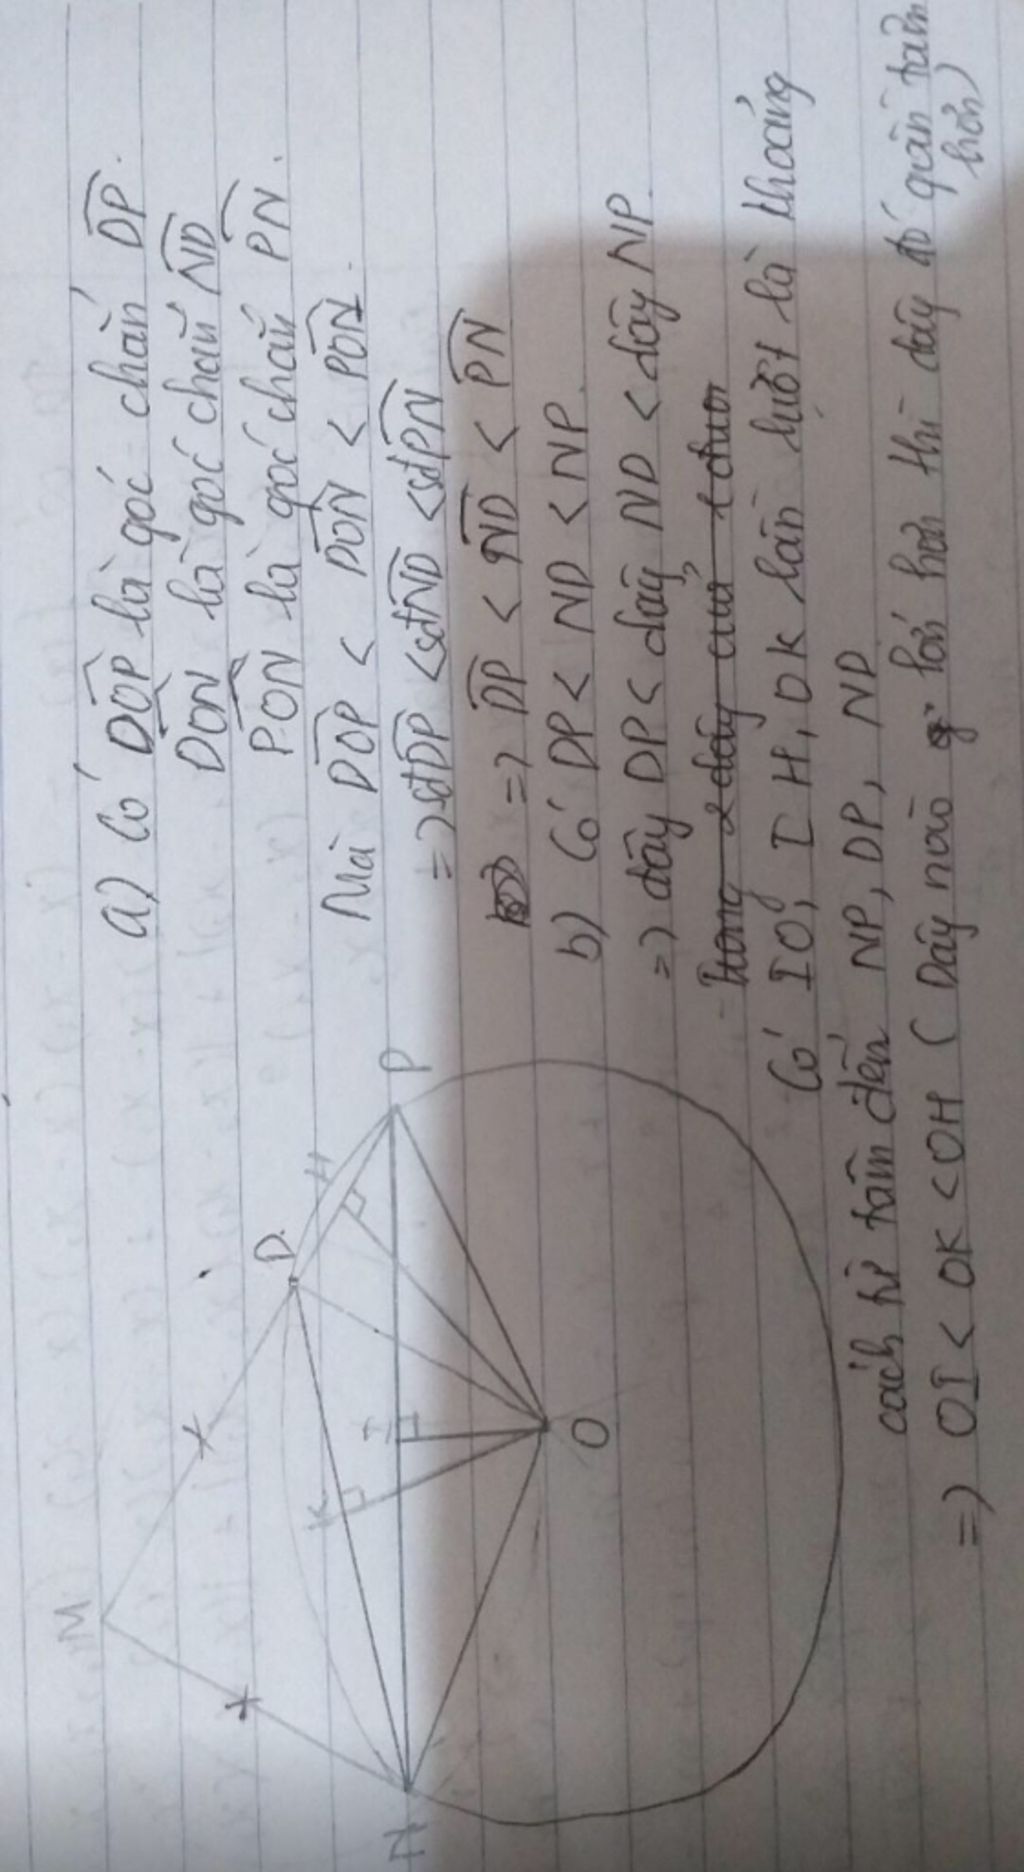 M
D
H
P
K
I
N
O
a) Có D̂OP là góc chắn D͡P.
D̂ON là góc chắn N͡D
P̂ON là góc chắn P͡N.
Mà D̂OP < D̂ON < P̂ON.
=) sđD͡P < sđN͡D < sđP͡N
=) D͡P < N͡D < P͡N
b) Có DP < ND < NP.
=) dây DP < dây ND < dây NP.
Trong 2 dây của 1 đươ
Có IO, I H, OK lần lượt là khoảng
cách từ tâm đến NP, DP, ND
=) OI < OK < OH ( Dây nào lớn hơn thì dây đó gần tâm
hơn)